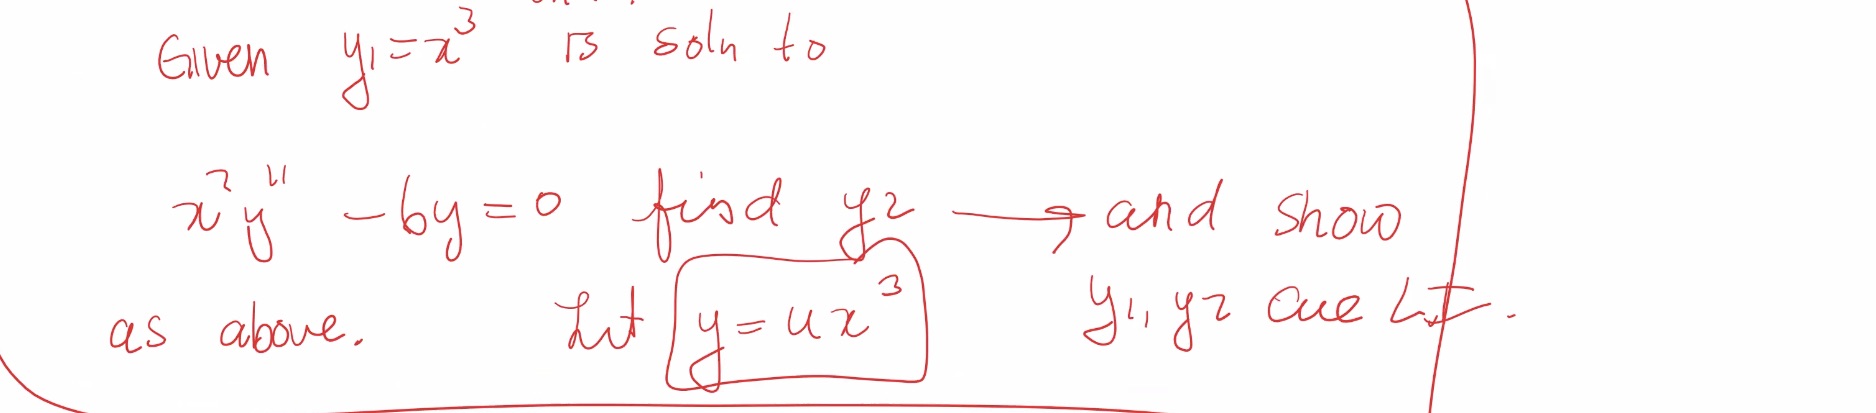 Given y₁ = x³ is soln to
x²y'' - 6y = 0 find y₂ → and show
as above. Let y = ux³ y₁, y₂ are LI.